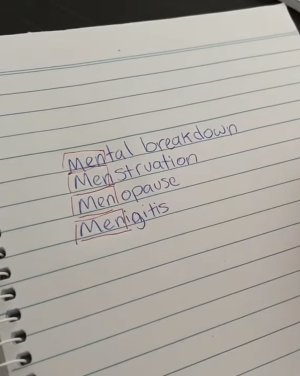 Mental breakdown
Menstruation
Menopause
Menigitis